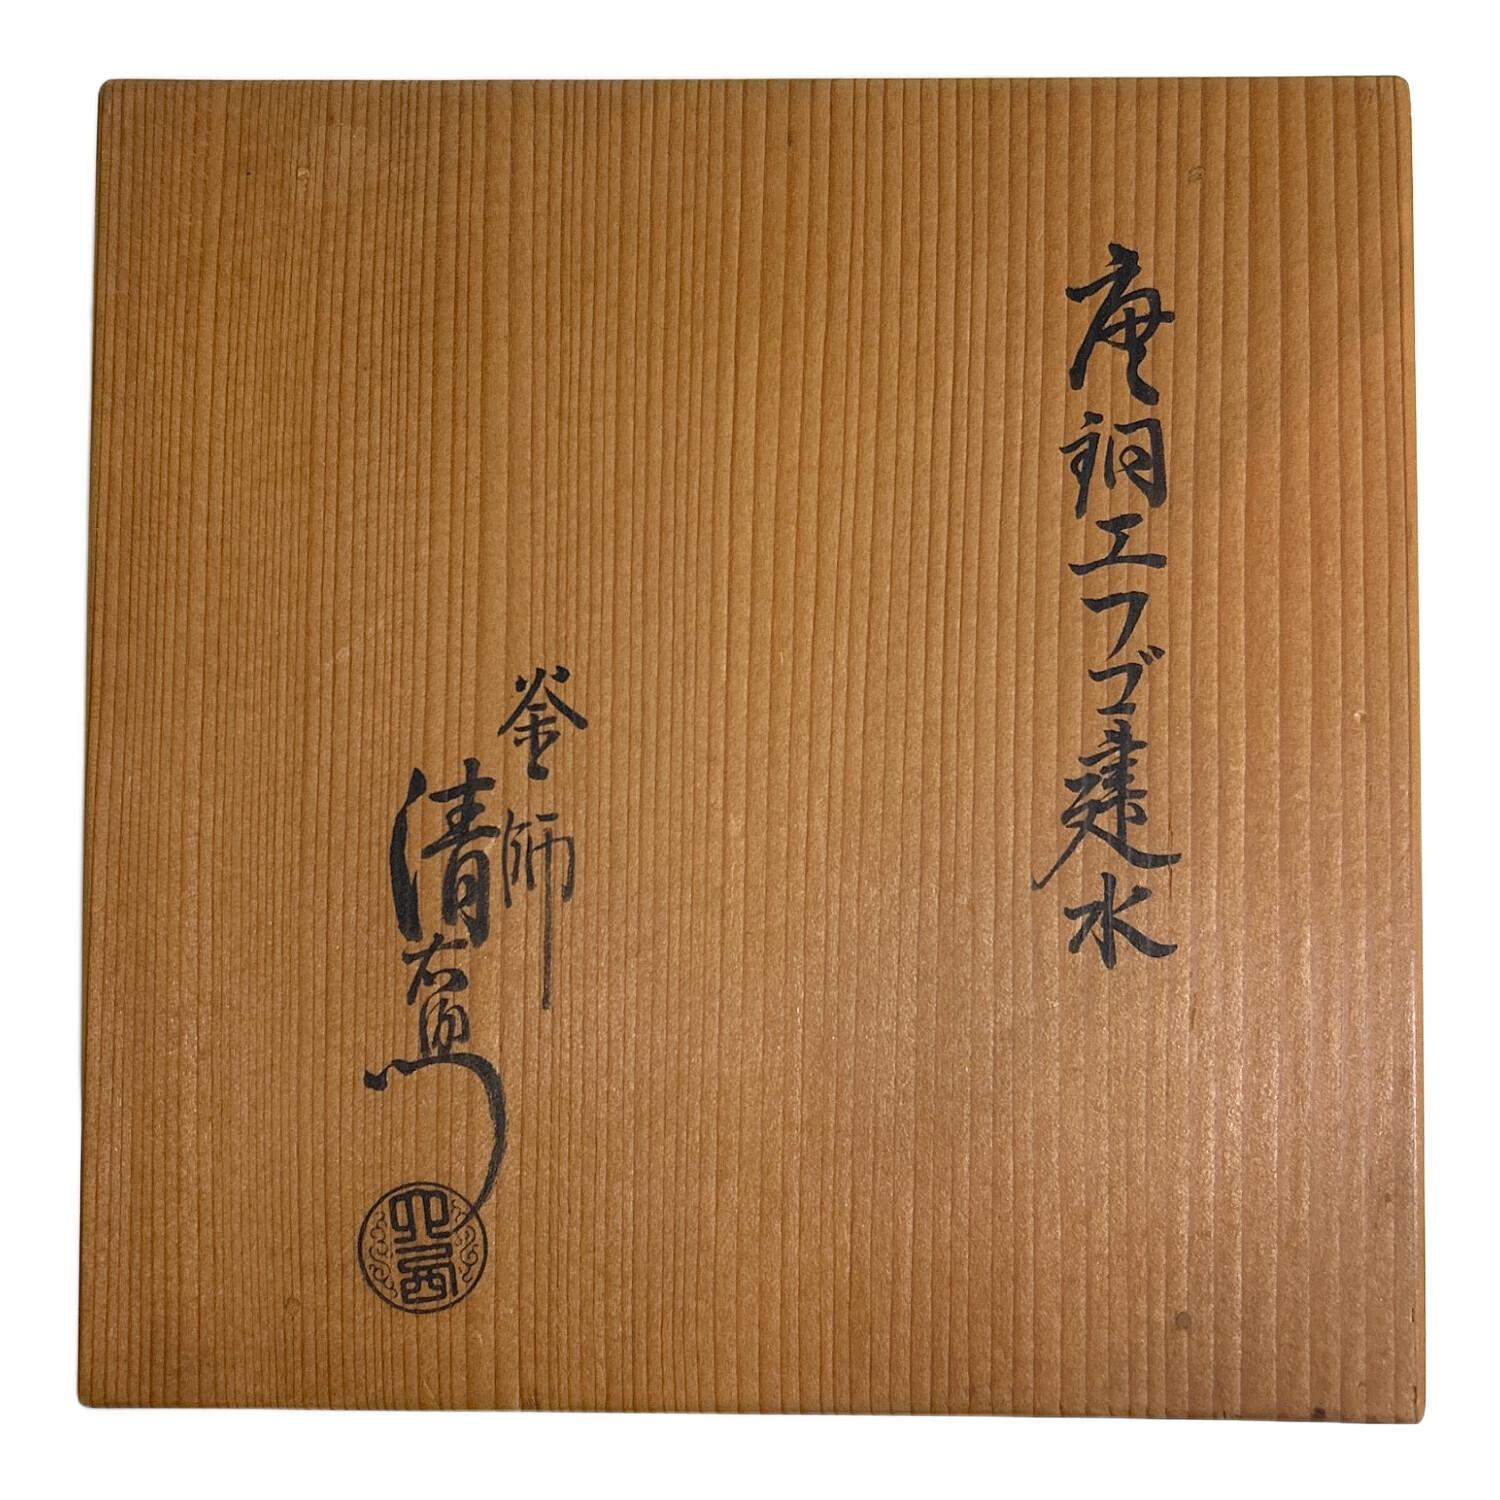 唐銅エフゴ建水
釜師
清右衛門